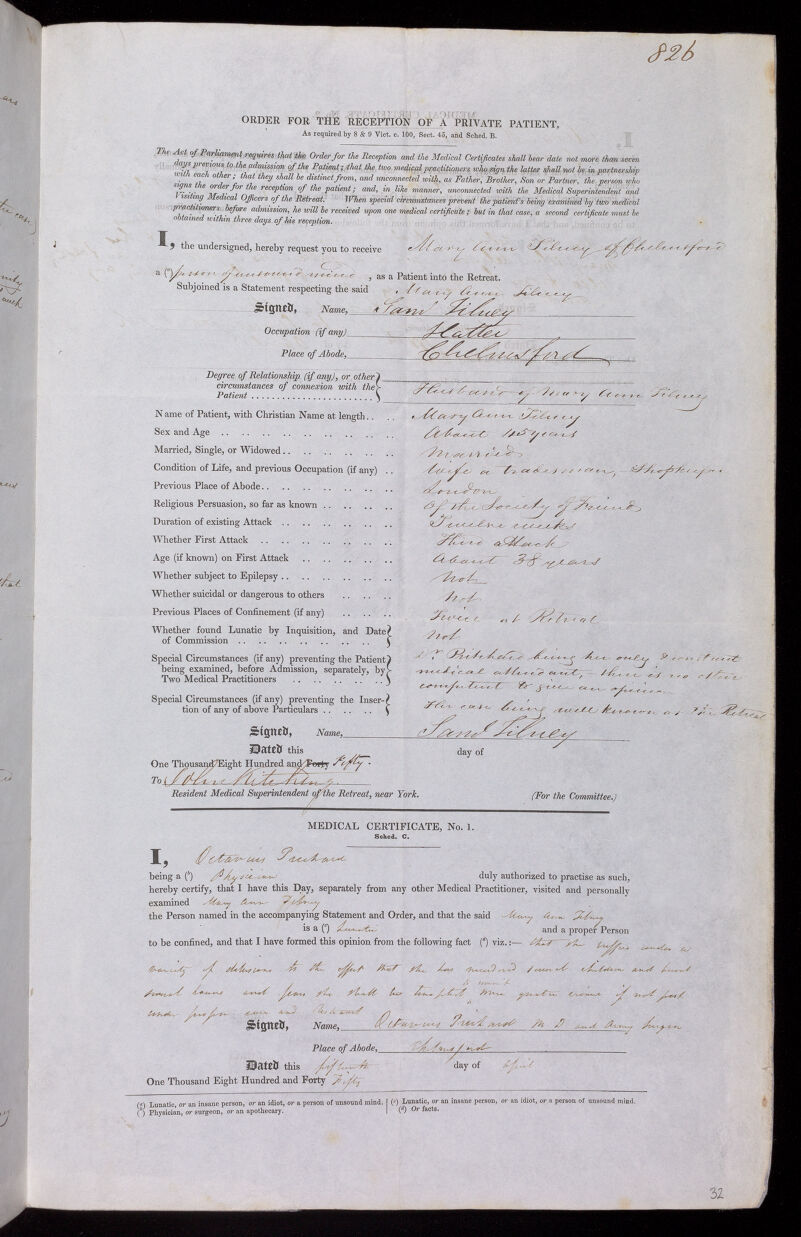 826
ORDER FOR THE RECEPTION OF A PRIVATE PATIENT,
As required by 8 & 9 Vict. c. 100, Sect. 45, and Sched. B.
The Act of Parliament requires that the Order for the Reception and the Medical Certificates shall bear date not more than seven
days previous to the admission of the Patient; that the two medical practitioners who sign the latter shall not be in partnership
with each other; that they shall be distinct from, and unconnected with, as Father, Brother, Son or Partner, the person who
signs the order for the reception of the patient; and, in like manner, unconnected with the Medical Superintendent and
Visiting Medical Officers of the Retreat. When special circumstances prevent the patient's being examined by two medical
practitioners before admission, he will be received upon one medical certificate; but in that case, a second certificate must be
obtained within three days of his reception.
I, the undersigned, hereby request you to receive Mary Ann Tilney of Chelmsford
a (a) person of unsound mind, as a Patient into the Retreat.
Subjoined is a Statement respecting the said Mary Ann Tilney
Signed, Name, Saml Tilney
Occupation (if any) Hatter
Place of Abode, Chelmsford
Degree of Relationship (if any), or other
circumstances of connexion with the
Patient Husband of Mary Ann Tilney
Name of Patient, with Christian Name at length Mary Ann Tilney
Sex and Age About 45 years
Married, Single, or Widowed Married
Condition of Life, and previous Occupation (if any) Wife a tradesman, - Shopkeeper
Previous Place of Abode London
Religious Persuasion, so far as known of the Society of Friends
Duration of existing Attack Twelve weeks
Whether First Attack Third attack
Age (if known) on First Attack About 38 years
Whether subject to Epilepsy Not
Whether suicidal or dangerous to others Not
Previous Places of Confinement (if any) Twice at Retreat
Whether found Lunatic by Inquisition, and Date
of Commission Not
Special Circumstances (if any) preventing the Patient
being examined, before Admission, separately, by
Two Medical Practitioners
Dr Pritchard being her only & constant
medical attendant, - there is no other
competent to give an opinion
Special Circumstances (if any) preventing the Inser-
tion of any of above Particulars
Her case being well known at the Retreat
Signed, Name, Saml Tilney
Dated this day of
One Thousand Eight Hundred and Forty Fifty.
To John Kitching
Resident Medical Superintendent of the Retreat, near York. (For the Committee.)
MEDICAL CERTIFICATE, No. 1.
Sched. C.
I, Octavius Prichard
being a (b) Physician duly authorized to practise as such,
hereby certify, that I have this Day, separately from any other Medical Practitioner, visited and personally
examined Mary Ann Tilney
the Person named in the accompanying Statement and Order, and that the said Mary Ann Tilney
is a (c) Lunatic and a proper Person
to be confined, and that I have formed this opinion from the following fact (d) viz.:— that she suffers under a
variety of delusions to the effect that she has murdered several children and burnt
several houses and fears she shall be tempted to commit more greater crimes if not put
under proper care and
Signed, Name, Octavius Prichard M D and Army Surgeon
Place of Abode, Chelmsford
Dated this fifteenth day of April
One Thousand Eight Hundred and Forty Fifty
(a) Lunatic, or an insane person, or an idiot, or a person of unsound mind.
(b) Physician, or surgeon, or an apothecary.
(c) Lunatic, or an insane person, or an idiot, or a person of unsound mind.
(d) Or facts.
32